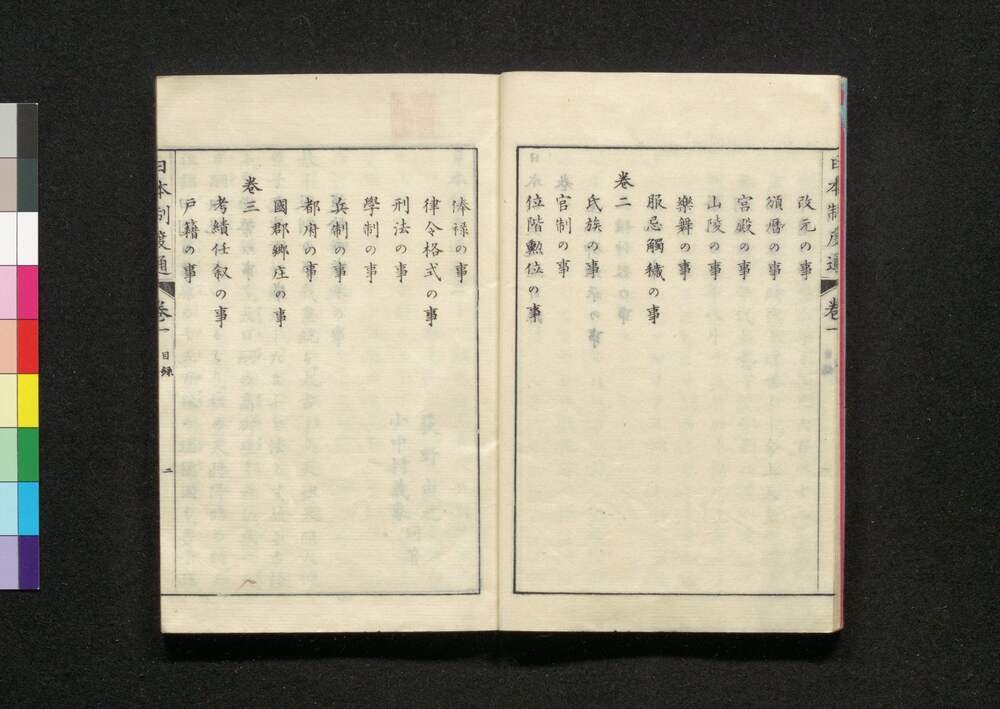 日本制度通
卷一
改元の事
頒曆の事
宮殿の事
山陵の事
樂舞の事
服忌觸穢の事
卷二
氏族の事
官制の事
位階勳位の事
俸祿の事
律令格式の事
刑法の事
學制の事
兵制の事
都府の事
國郡鄉庄の事
卷三
考績任叙の事
戶籍の事
日本制度通
卷一
目錄
二